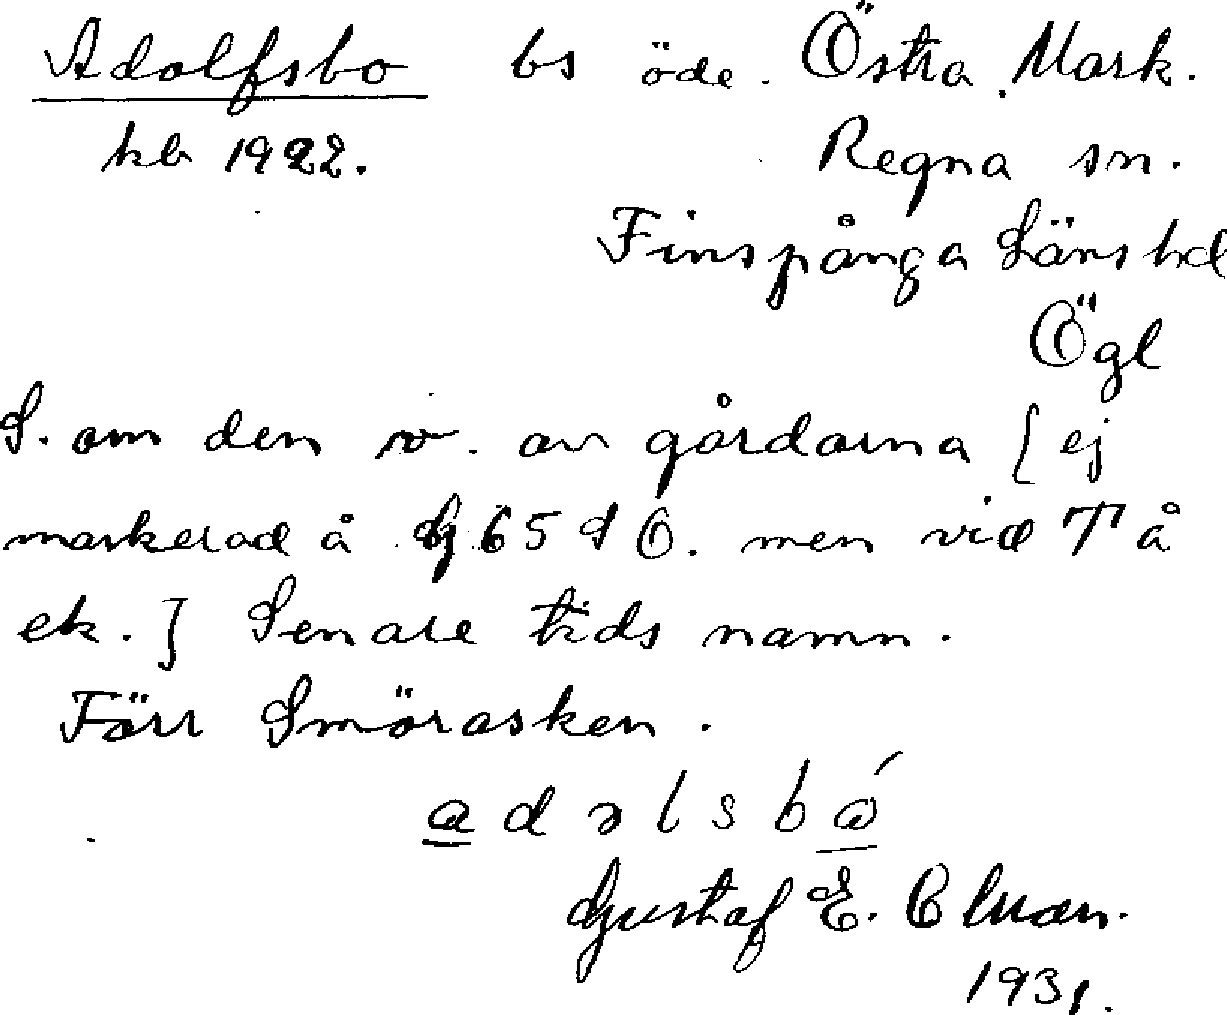 Adolfsbo bs öde. Östra Mark.
kb 1922. Regna sn.
Finspånga Läns hd
Ögl
S. om den v. av gårdarna [ej
markerad å Gj 65 d 6. men vid T å
ek.] Senare tids namn.
Förr Smörasken.
a d ɔ l s b ó
Gustaf E.
1931.